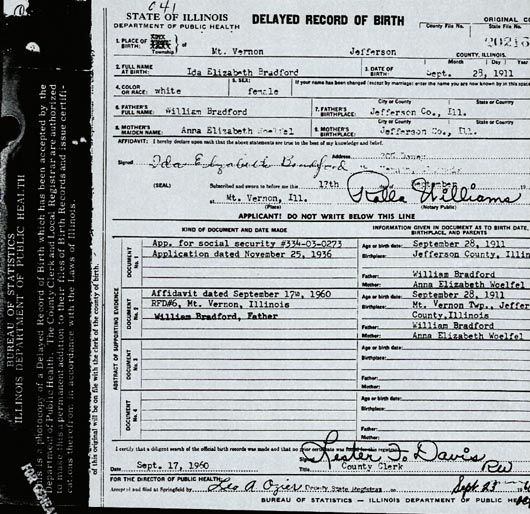 641
STATE OF ILLINOIS
DEPARTMENT OF PUBLIC HEALTH
DELAYED RECORD OF BIRTH
ORIGINAL CO
County File No.
State File No.
1. PLACE OF BIRTH: Township of Mt. Vernon Jefferson COUNTY, ILLINOIS.
2. FULL NAME AT BIRTH: Ida Elizabeth Bradford
3. DATE OF BIRTH: Month Day Year Sept. 28, 1911
4. COLOR OR RACE: white
5. SEX: female
If your name has been changed (except by marriage) enter the name you are now known by in this space
City or County State or Country
6. FATHER'S FULL NAME: William Bradford
7. FATHER'S BIRTHPLACE: Jefferson Co., Ill.
City or County State or Country
8. MOTHER'S MAIDEN NAME: Anna Elizabeth Woelfel
9. MOTHER'S BIRTHPLACE: Jefferson Co., Ill.
AFFIDAVIT: I hereby declare upon oath that the above statements are true to the best of my knowledge and belief.
Signed Ida Elizabeth Bradford
Address
(SEAL) Subscribed and sworn to before me this 17th day of September
Mt. Vernon, Ill. Rolla Williams
(Place) (Notary Public)
APPLICANT! DO NOT WRITE BELOW THIS LINE
KIND OF DOCUMENT AND DATE MADE
INFORMATION GIVEN IN DOCUMENT AS TO BIRTH DATE, BIRTHPLACE, AND PARENTS
ABSTRACT OF SUPPORTING EVIDENCE
DOCUMENT No. 1
App. for social security #334-03-0273
Application dated November 25, 1936
Age or birth date: September 28, 1911
Birthplace: Jefferson County, Illin
Father: William Bradford
Mother: Anna Elizabeth Woelfel
DOCUMENT No. 2
Affidavit dated September 17, 1960
RFD#6, Mt. Vernon, Illinois
William Bradford, Father
Age or birth date: September 28, 1911
Birthplace: Mt. Vernon Twp., Jeffer
County, Illinois
Father: William Bradford
Mother: Anna Elizabeth Woelfel
DOCUMENT No. 3
Age or birth date:
Birthplace:
Father:
Mother:
DOCUMENT No. 4
Age or birth date:
Birthplace:
Father:
Mother:
I certify that a diligent search of the official birth records was made and that no prior certificate was found for this registration
Lester F. Davis
Date Sept. 17, 1960 Title County Clerk
FOR THE DIRECTOR OF PUBLIC HEALTH:
Accepted and filed at Springfield by Leo A. Ozier Deputy State Registrar on Sept 23
BUREAU OF STATISTICS — ILLINOIS DEPARTMENT OF PUBLIC HE
BUREAU OF STATISTICS
ILLINOIS DEPARTMENT OF PUBLIC HEALTH
is a photocopy of a Delayed Record of Birth which has been accepted by the
Department of Public Health. The County Clerk and Local Registrar are authorized
to make this a permanent addition to their files of Birth Records and issue certifi-
cations therefrom in accordance with the Laws of Illinois.
of this original will be on file with the clerk of the county of birth.